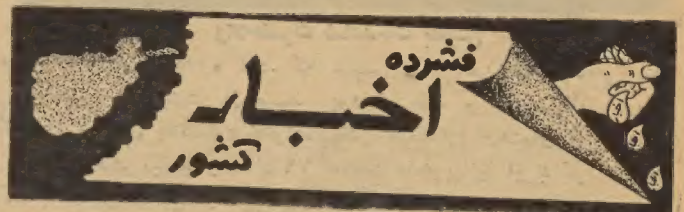 فشرده
اخبار
کشور